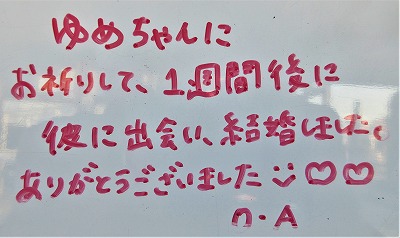 ゆめちゃんに
お祈りして、1週間後に
彼に出会い、結婚しました。
ありがとうございました☺♡♡
n.A